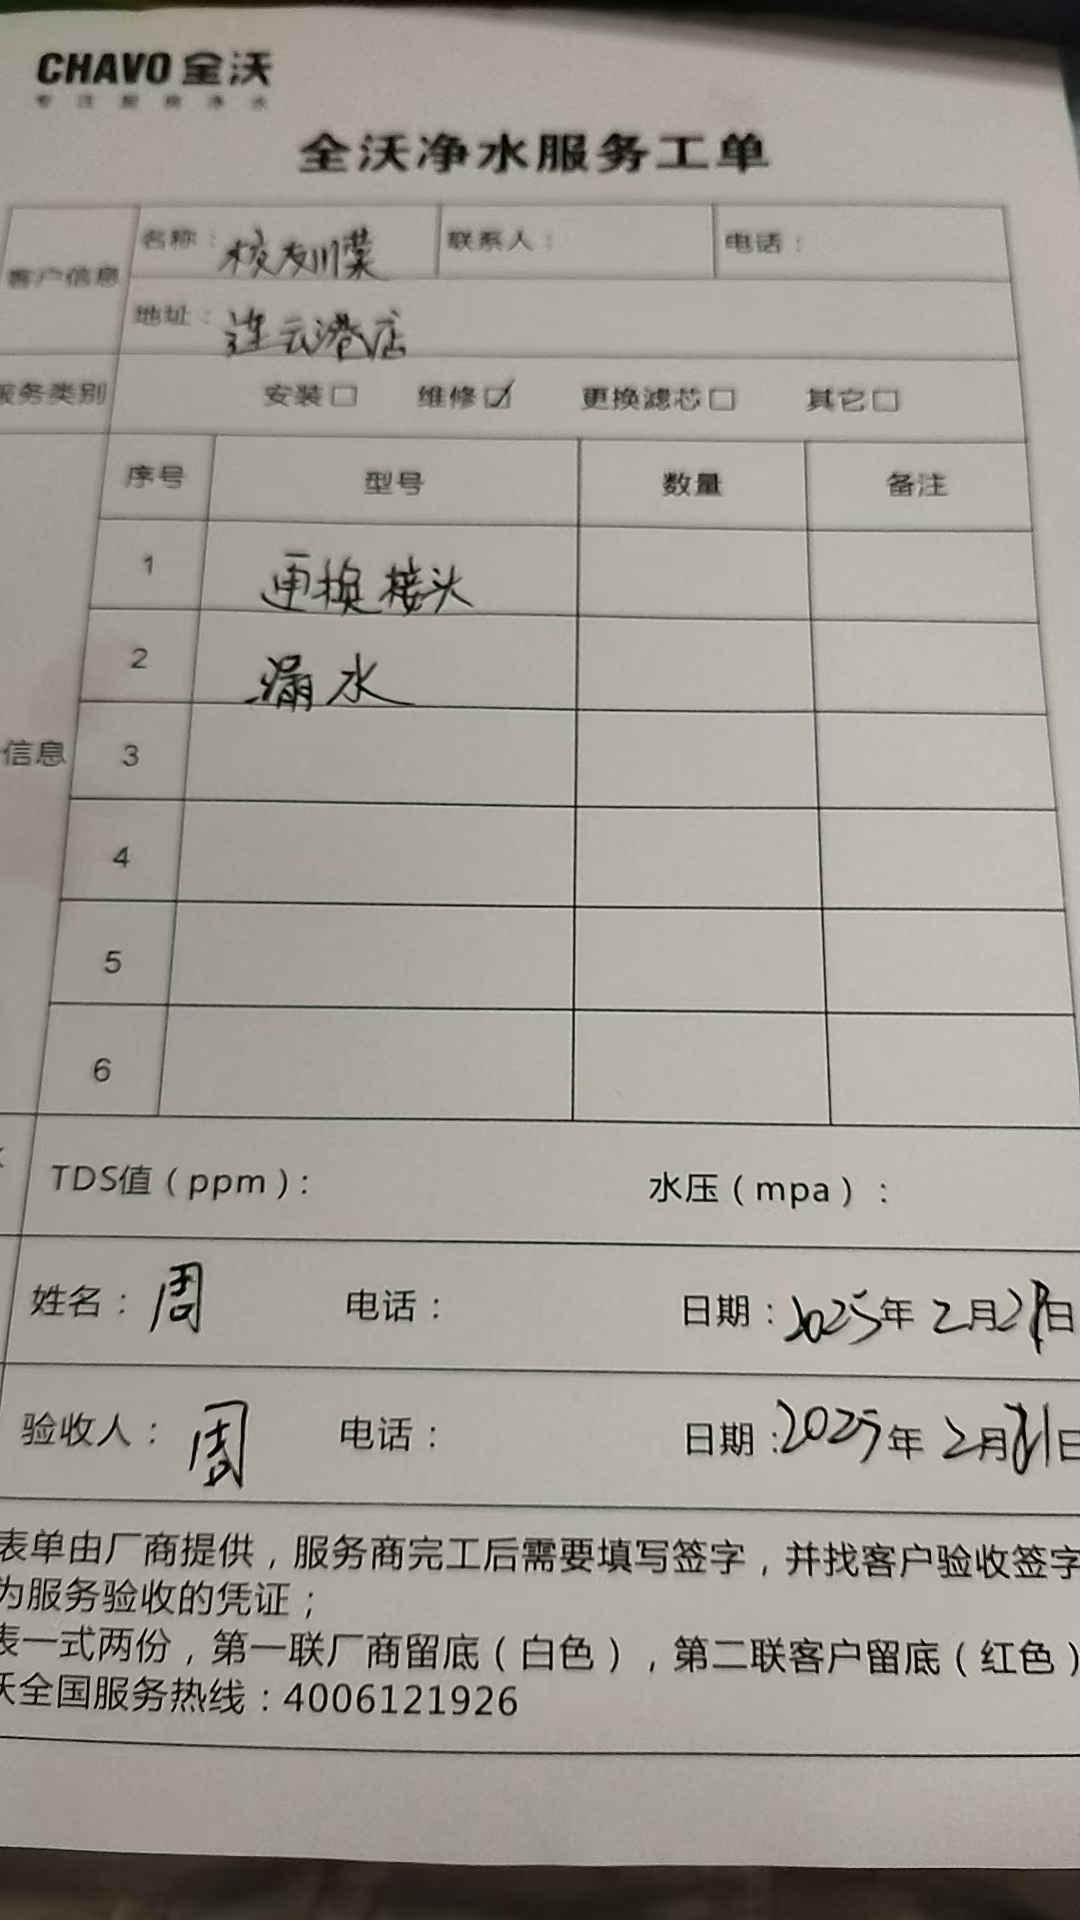 CHAVO 全沃
专注厨房净水
全沃净水服务工单
客户信息
名称：校友川菜 联系人： 电话：
地址：连云港店
服务类别 安装□ 维修☑ 更换滤芯□ 其它□
序号 型号 数量 备注
1 更换接头
2 漏水
信息 3
4
5
6
TDS值（ppm）： 水压（mpa）：
姓名：周 电话： 日期：2025年2月 日
验收人：周 电话： 日期：2025年2月 日
表单由厂商提供，服务商完工后需要填写签字，并找客户验收签字
为服务验收的凭证；
表一式两份，第一联厂商留底（白色），第二联客户留底（红色）
沃全国服务热线：4006121926